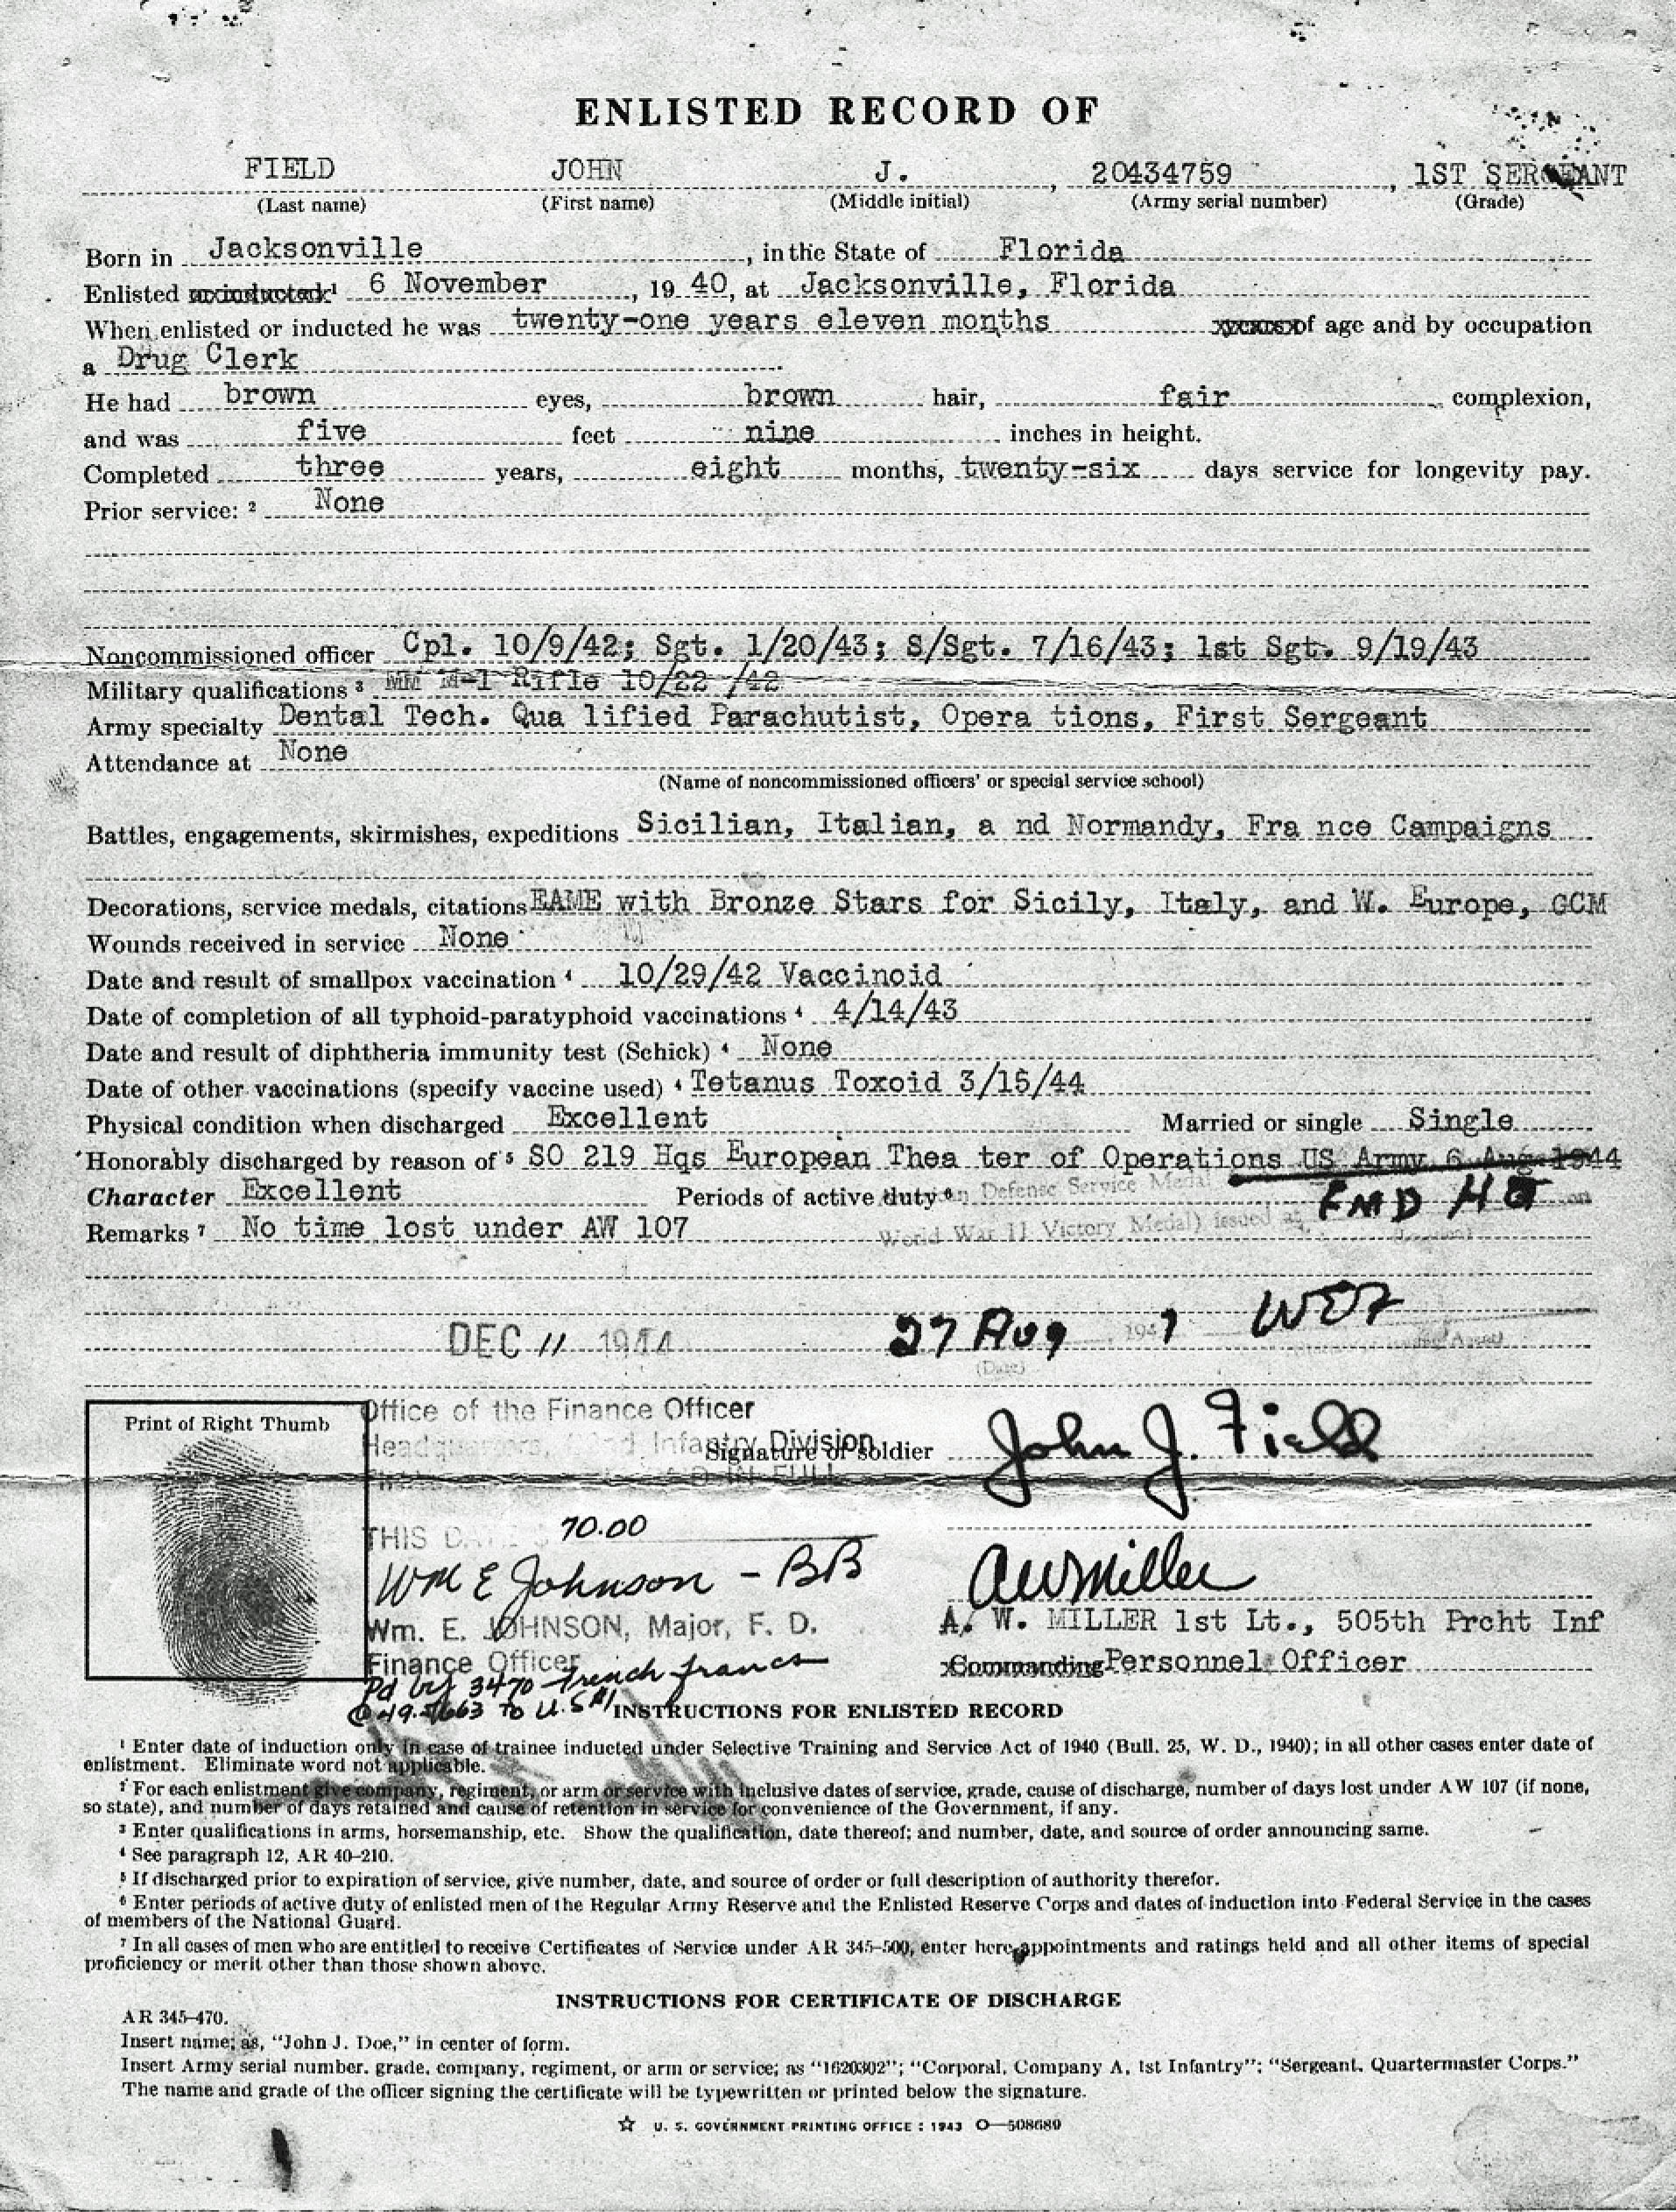 ENLISTED RECORD OF
FIELD JOHN J. , 20434759 , 1ST SERGEANT
(Last name) (First name) (Middle initial) (Army serial number) (Grade)
Born in Jacksonville , in the State of Florida
Enlisted or inducted¹ 6 November , 19 40, at Jacksonville, Florida
When enlisted or inducted he was twenty-one years eleven months of age and by occupation
a Drug Clerk
He had brown eyes, brown hair, fair complexion,
and was five feet nine inches in height.
Completed three years, eight months, twenty-six days service for longevity pay.
Prior service: ² None
Noncommissioned officer Cpl. 10/9/42; Sgt. 1/20/43; S/Sgt. 7/16/43; 1st Sgt. 9/19/43
Military qualifications ³ MM M-1 Rifle 10/22 /42
Army specialty Dental Tech. Qua lified Parachutist, Opera tions, First Sergeant
Attendance at None
(Name of noncommissioned officers' or special service school)
Battles, engagements, skirmishes, expeditions Sicilian, Italian, a nd Normandy, Fra nce Campaigns
Decorations, service medals, citations EAME with Bronze Stars for Sicily, Italy, and W. Europe, GCM
Wounds received in service None
Date and result of smallpox vaccination ⁴ 10/29/42 Vaccinoid
Date of completion of all typhoid-paratyphoid vaccinations ⁴ 4/14/43
Date and result of diphtheria immunity test (Schick) ⁴ None
Date of other vaccinations (specify vaccine used) ⁴ Tetanus Toxoid 3/15/44
Physical condition when discharged Excellent Married or single Single
Honorably discharged by reason of ⁵ SO 219 Hqs European Thea ter of Operations US Army 6 Aug 1944
Character Excellent Periods of active duty ⁶ Defense Service Medal
Remarks ⁷ No time lost under AW 107 World War II Victory Medal) issued at
DEC 11 1944 27 Aug , 1947
(Date)
Print of Right Thumb
Office of the Finance Officer
Headquarters, Infantry Division
Signature of soldier John J. Field
IN FULL
THIS 70.00
Wm E Johnson - BB
AWMiller
Wm. E. JOHNSON, Major, F. D.
A. W. MILLER 1st Lt., 505th Prcht Inf
Finance Officer
Commanding Personnel Officer
Pd by 3470 french francs
to U.S. $1
INSTRUCTIONS FOR ENLISTED RECORD
¹ Enter date of induction only in case of trainee inducted under Selective Training and Service Act of 1940 (Bull. 25, W. D., 1940); in all other cases enter date of
enlistment. Eliminate word not applicable.
² For each enlistment give company, regiment, or arm or service with inclusive dates of service, grade, cause of discharge, number of days lost under AW 107 (if none,
so state), and number of days retained and cause of retention in service for convenience of the Government, if any.
³ Enter qualifications in arms, horsemanship, etc. Show the qualification, date thereof; and number, date, and source of order announcing same.
⁴ See paragraph 12, AR 40-210.
⁵ If discharged prior to expiration of service, give number, date, and source of order or full description of authority therefor.
⁶ Enter periods of active duty of enlisted men of the Regular Army Reserve and the Enlisted Reserve Corps and dates of induction into Federal Service in the cases
of members of the National Guard.
⁷ In all cases of men who are entitled to receive Certificates of Service under AR 345-500, enter here appointments and ratings held and all other items of special
proficiency or merit other than those shown above.
INSTRUCTIONS FOR CERTIFICATE OF DISCHARGE
AR 345-470.
Insert name; as, "John J. Doe," in center of form.
Insert Army serial number, grade, company, regiment, or arm or service; as "1620302"; "Corporal, Company A, 1st Infantry"; "Sergeant, Quartermaster Corps."
The name and grade of the officer signing the certificate will be typewritten or printed below the signature.
☆ U. S. GOVERNMENT PRINTING OFFICE : 1943 O—508689